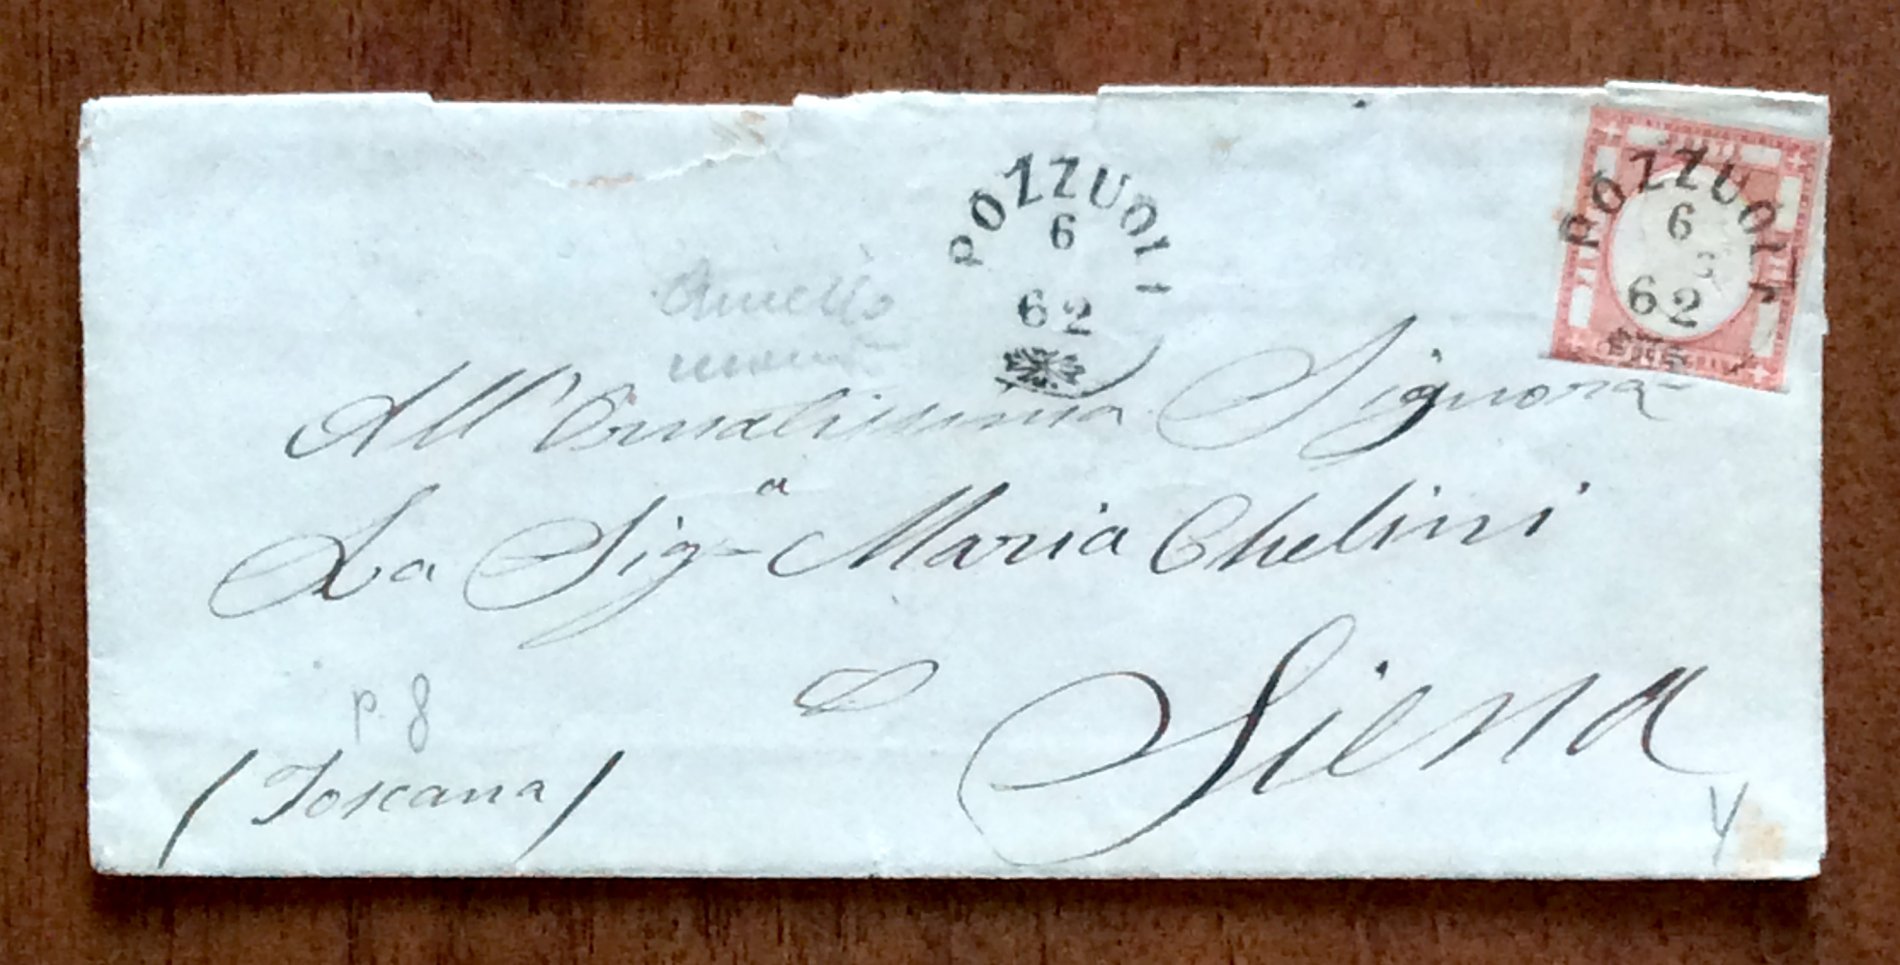 POZZUOLI
6
62
POZZUOLI
6
62
All'Ornatissima Signora
La Sig.ª Maria Chelini
Siena
P. 8
(Toscana)